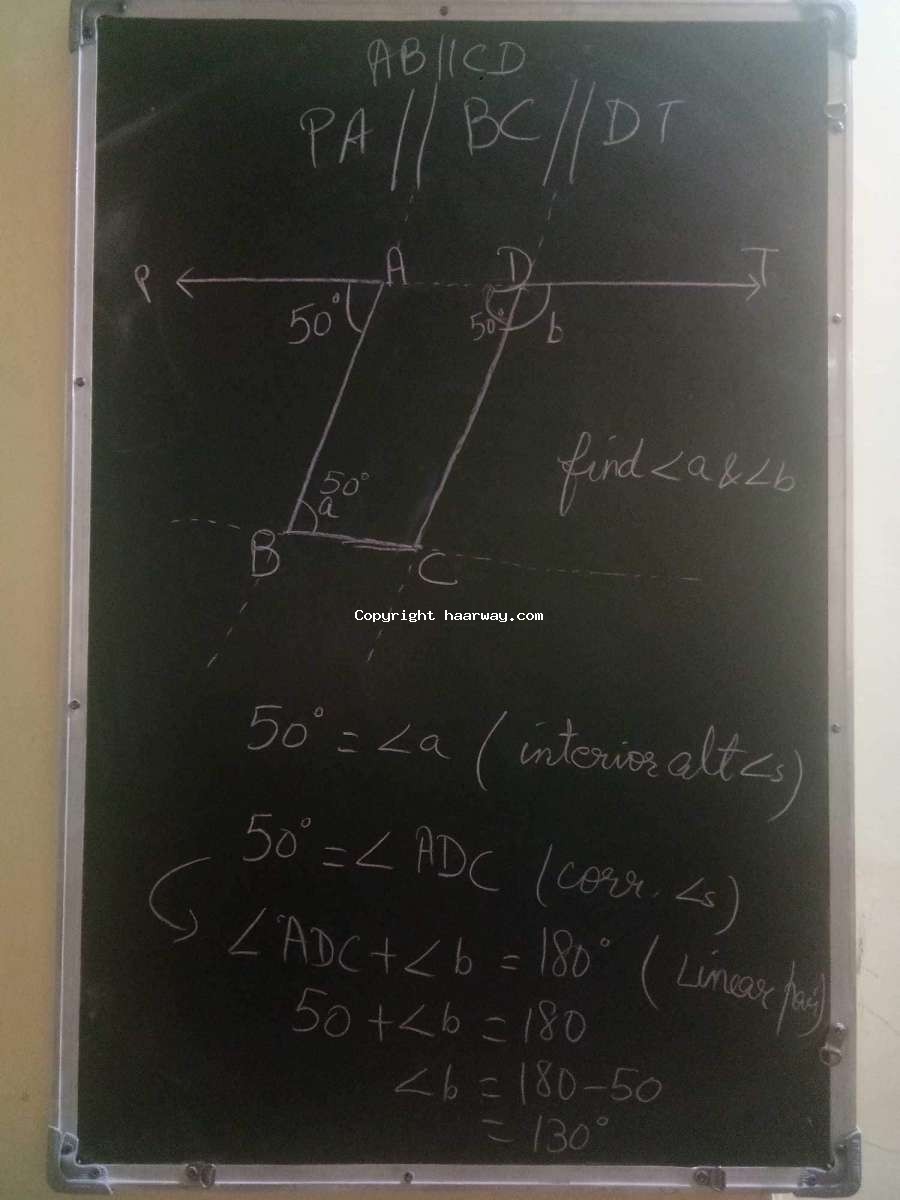 AB||CD
PA || BC || DT
P A D T
50° 50° b
find ∠a & ∠b
50°
a
B C
Copyright haarway.com
50° = ∠a (interior alt ∠s)
50° = ∠ADC (corr. ∠s)
∠ADC + ∠b = 180° (Linear pair)
50 + ∠b = 180
∠b = 180 - 50
= 130°